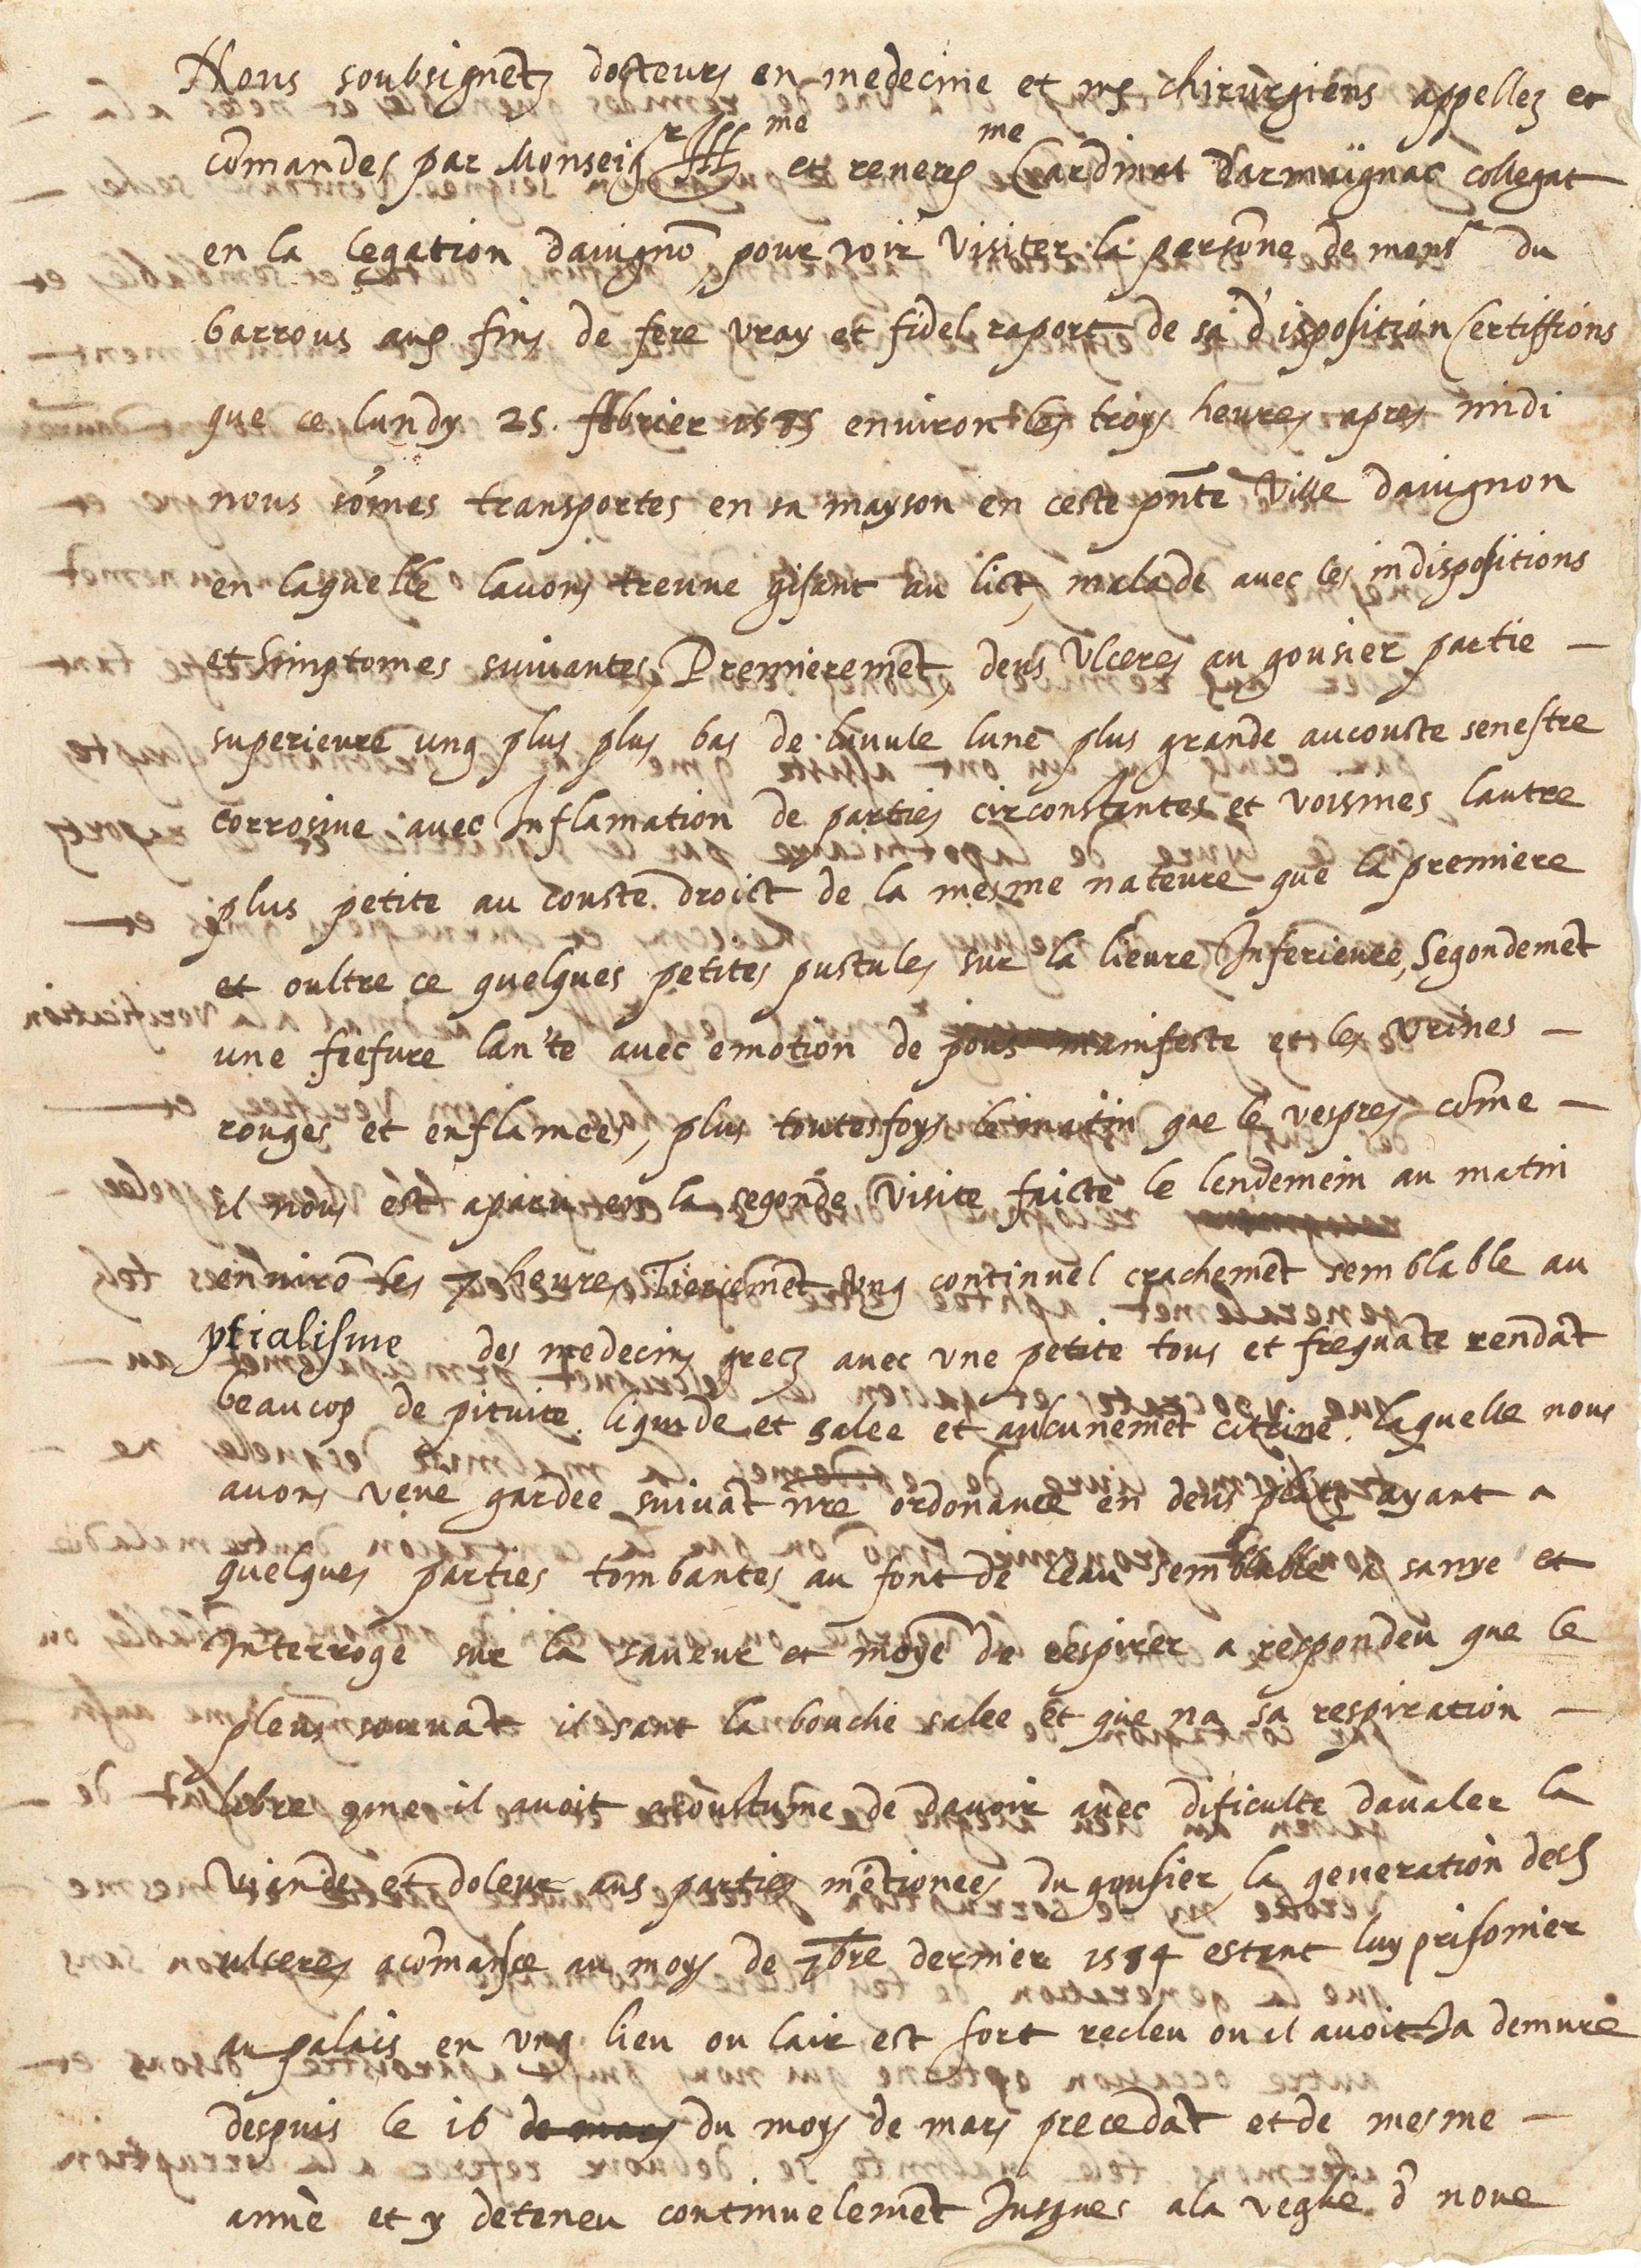 Nous soubsignetz docteurs en medecine et mes chirurgiens appellez et
cōmandes par Monseigr Illme et reveresme Cardinal Darmaignac collegat
en la legation davignō pour voir visiter la persōne de monsr du
barrous aus fins de fere vray et fidel raport de sa disposition Certiffions
que ce lundy 25. febrier 1585 environ les troys heures apres midi
nous sōmes transportes en sa mayson en ceste pn̄te ville davignon
en laquelle lavons treuve gisant au lict, malade avec les indispositions
et simptomes suivantes, Premieremēt, deus ulceres au gousier partie —
superieure ung plus plus bas de luvule lune plus grande au couste senestre
corrosive avec Inflamation de parties circonstantes et voisines lautre
plus petite au couste droict de la mesme nateure que la premiere
et oultre ce quelques petites pustules sur la lievre Inferieure, Segondemēt
une fiefvre lante avec emotion de pous manifeste et les urines —
rouges et enflamees, plus toutesfoys le matin que le vespres cōme —
il nous est aparu en la segonde visite faicte le lendemein au matin
envirō les 7 heures, Tiercemēt ung continuel crachemēt semblable au
ptialisme des medecins grecz avec une petite tous et frequāte rendāt
beaucop de pituite liquide et salee et aulcunemēt citrine. laquelle nous
avons veue gardee suivāt nr̄e ordonance en deus platz ayant a
quelques parties tombantes au font de leau semblable a sanye et
Interrogé sur la saveur et moyē de respirer a respondeu que le
pleus souvāt il sant la bouche salee et que na sa respiration —
libre cōme il avoit acoustume de davoir avec dificulte davaler la
viande et doleur aus parties mētionees du gousier, la generation desd
ulceres acōmāse au moys de 7bre dernier 1584 estant luy prisonier
au palais en ung lieu ou lair est fort recleu ou il avoit Ja demure
despuis le 16 de mars du moys de mars precedāt et de mesme —
année et y deteneu continuelemēt Jusques a la veglie d noue